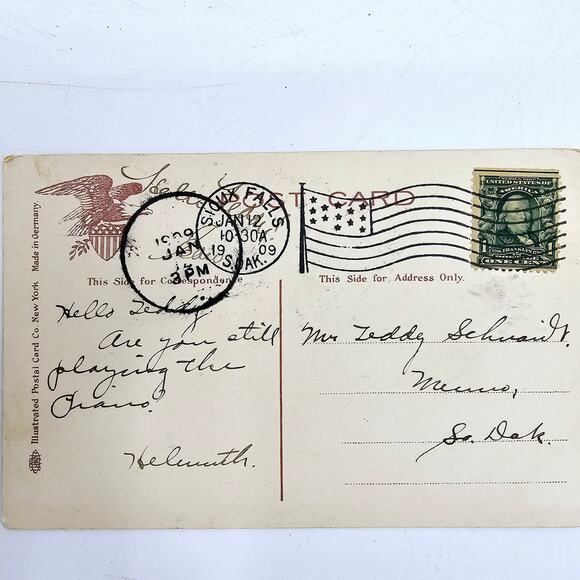 POST CARD
SIOUX FALLS
JAN 12
10-30A
19 09
S. DAK.
1909
JAN
3 PM
UNITED STATES OF
FRANKLIN
1 ONE CENT
This Side for Correspondence
This Side for Address Only.
Hello Teddy
Are you still
playing the
Piano.
Helmuth.
Mr Teddy Schmidt.
Menno,
So. Dak.
Illustrated Postal Card Co. New York Made in Germany